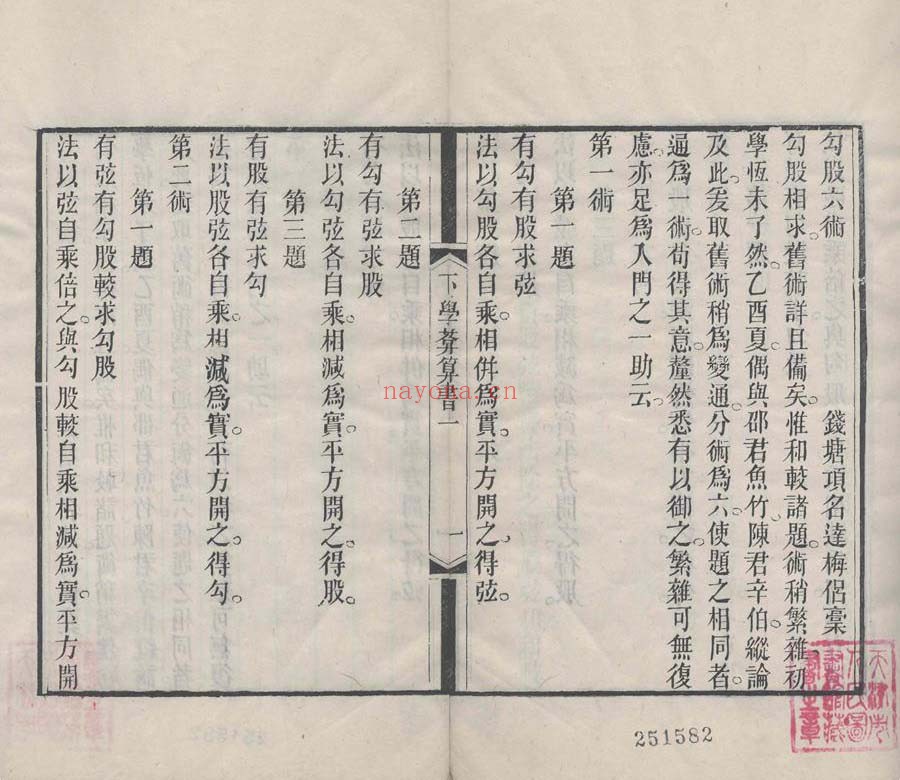 勾股六術　　　　　　　錢塘項名達梅侶稾
勾股相求。舊術詳且備矣。惟和較諸題。術稍繁雜。初
學恆未了然。乙酉夏。偶與邵君魚竹、陳君辛伯縱論
及此。爰取舊術稍爲變通。分術爲六。使題之相同者。
通爲一術。苟得其意。釐然悉有以御之。繁雜可無復
慮。亦足爲入門之一助云。
第一術
第一題
有勾有股求弦
法以勾股各自乘。相併爲實。平方開之。得弦。
下學葊算書一
一
第二題
有勾有弦求股
法以勾弦各自乘。相減爲實。平方開之。得股。
第三題
有股有弦求勾
法以股弦各自乘。相減爲實。平方開之。得勾。
第二術
第一題
有弦有勾股較求勾股
法以弦自乘倍之。與勾股較自乘相減爲實。平方開
nayona.cn
251582